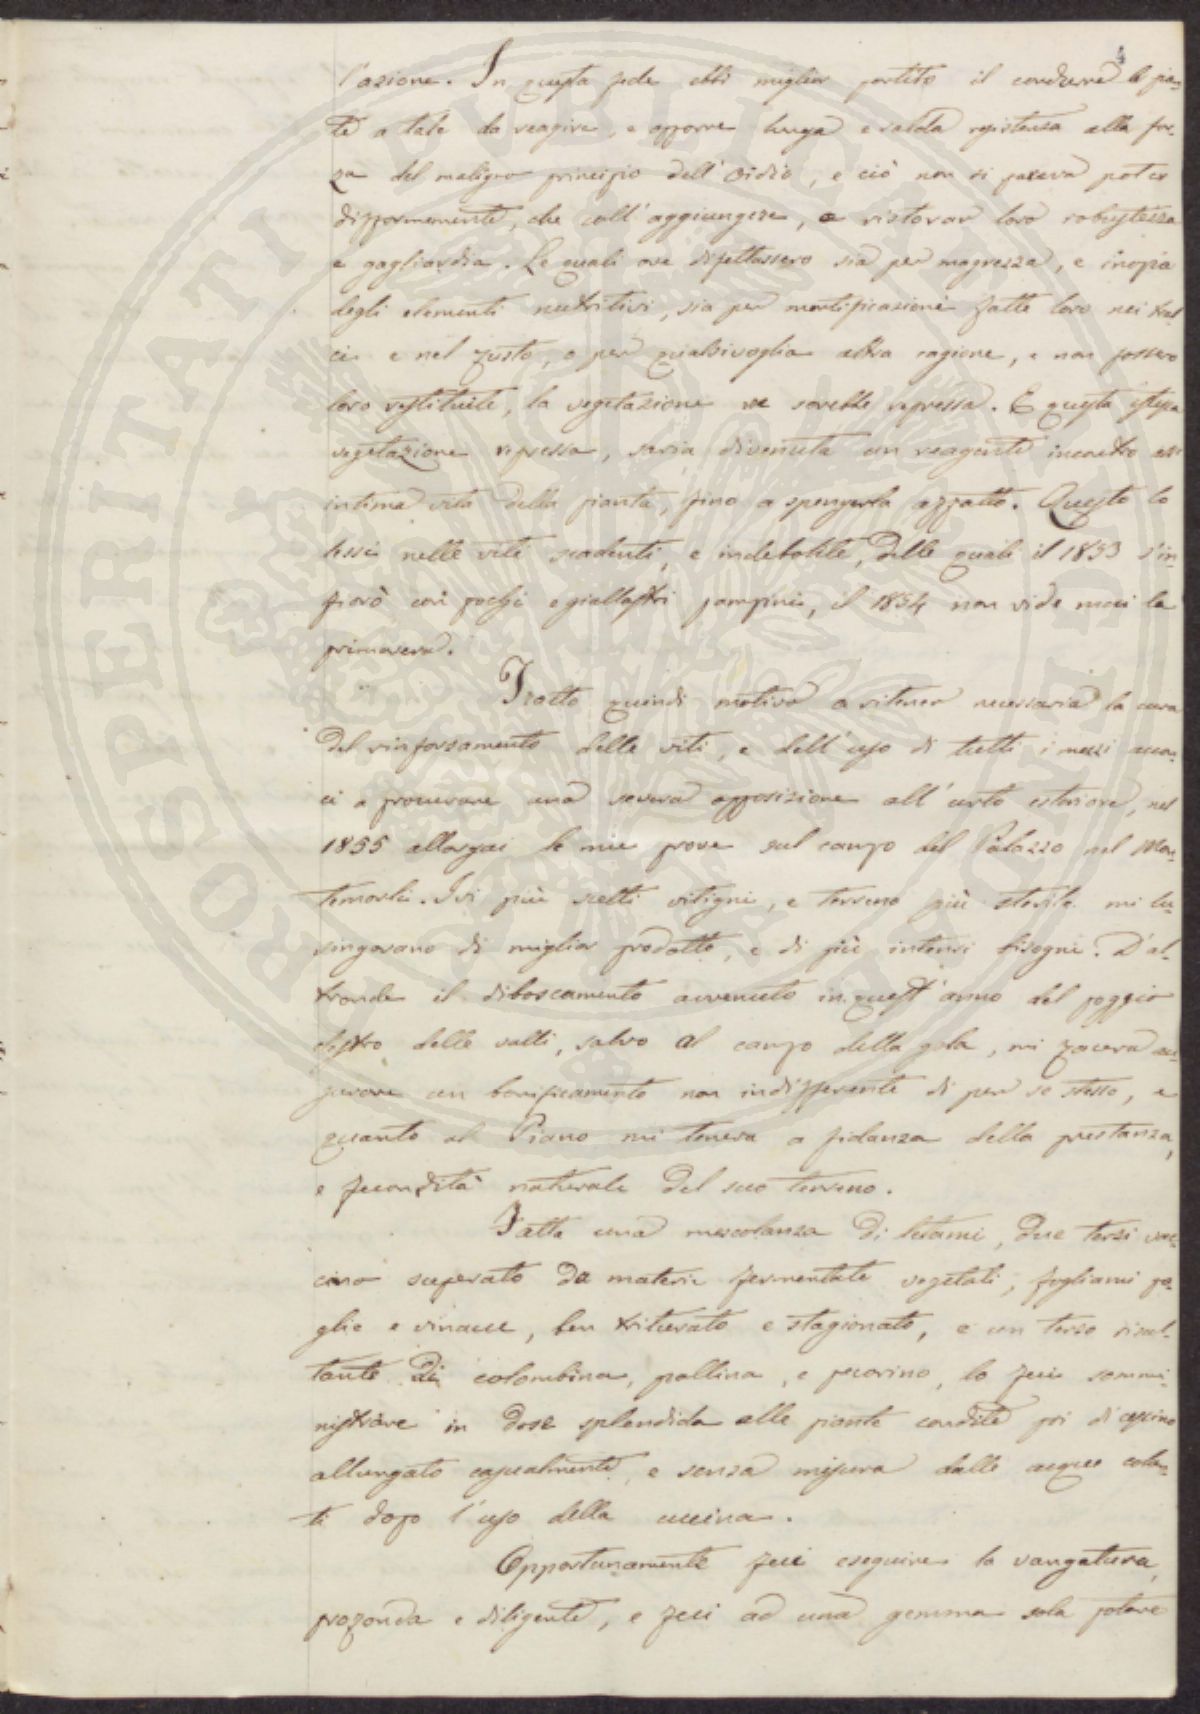 4
l'azione. In questa fede ebbi miglior partito il condurre le pian-
te a tale da reagire, e opporre lunga e salda resistenza alla for-
za del maligno principio dell'Oidio, e ciò non si poteva poter
difformemente, che coll'aggiungere, e ristorar loro robustezza
e gagliardia. Le quali ove difettassero sia per magrezza, e inopia
degli elementi nutritivi, sia per mortificazione fatte loro nei tral-
ci e nel fusto, o per qualsivoglia altra cagione, e non fossero
loro restituite, la vegetazione ne sarebbe repressa. E questa istessa
vegetazione repressa, saria divenuta un reagente incontro all'
intima vita della pianta, fino a spengerla affatto. Questo lo
lessi nelle vite scadenti, e indebolite, delle quali il 1853 s'in-
fiorò con pochi e giallastri pampini, il 1854 non vide mai la
primavera.
Tratto quindi motivo a ritener necessaria la cura
del rinforzamento delle viti, e dell'uso di tutti i mezzi accon-
ci a procurare una severa opposizione all'urto esteriore, nel
1855 allargai le mie prove sul campo del Palazzo nel Mon-
temorli. Ivi più scelti vitigni, e terreno più sterile mi lu-
singavano di miglior prodotto, e di più intensi bisogni. D'al-
tronde il diboscamento avvenuto in quest'anno del poggio
destro delle valli, salvo al campo della gola, mi faceva
un bonificamento non indifferente di per se stesso, e
quanto al Piano mi teneva a fidanza della prestanza,
e fecondità naturale del suo terreno.
Fatta una mescolanza di letami, due terzi vac-
cino superato da materie fermentate vegetali, fogliami pa-
glie e vinacce, ben triturato e stagionato, e un terzo risul-
tante di colombina, pollina, e pecorino, lo feci sommi-
nistrare in dose splendida alle piante condite poi di
allungato casualmente, e senza misura dalle acque cola-
te dopo l'uso della cucina.
Opportunamente feci eseguire la vangatura,
profonda e diligente, e feci ad una gemma sola potare